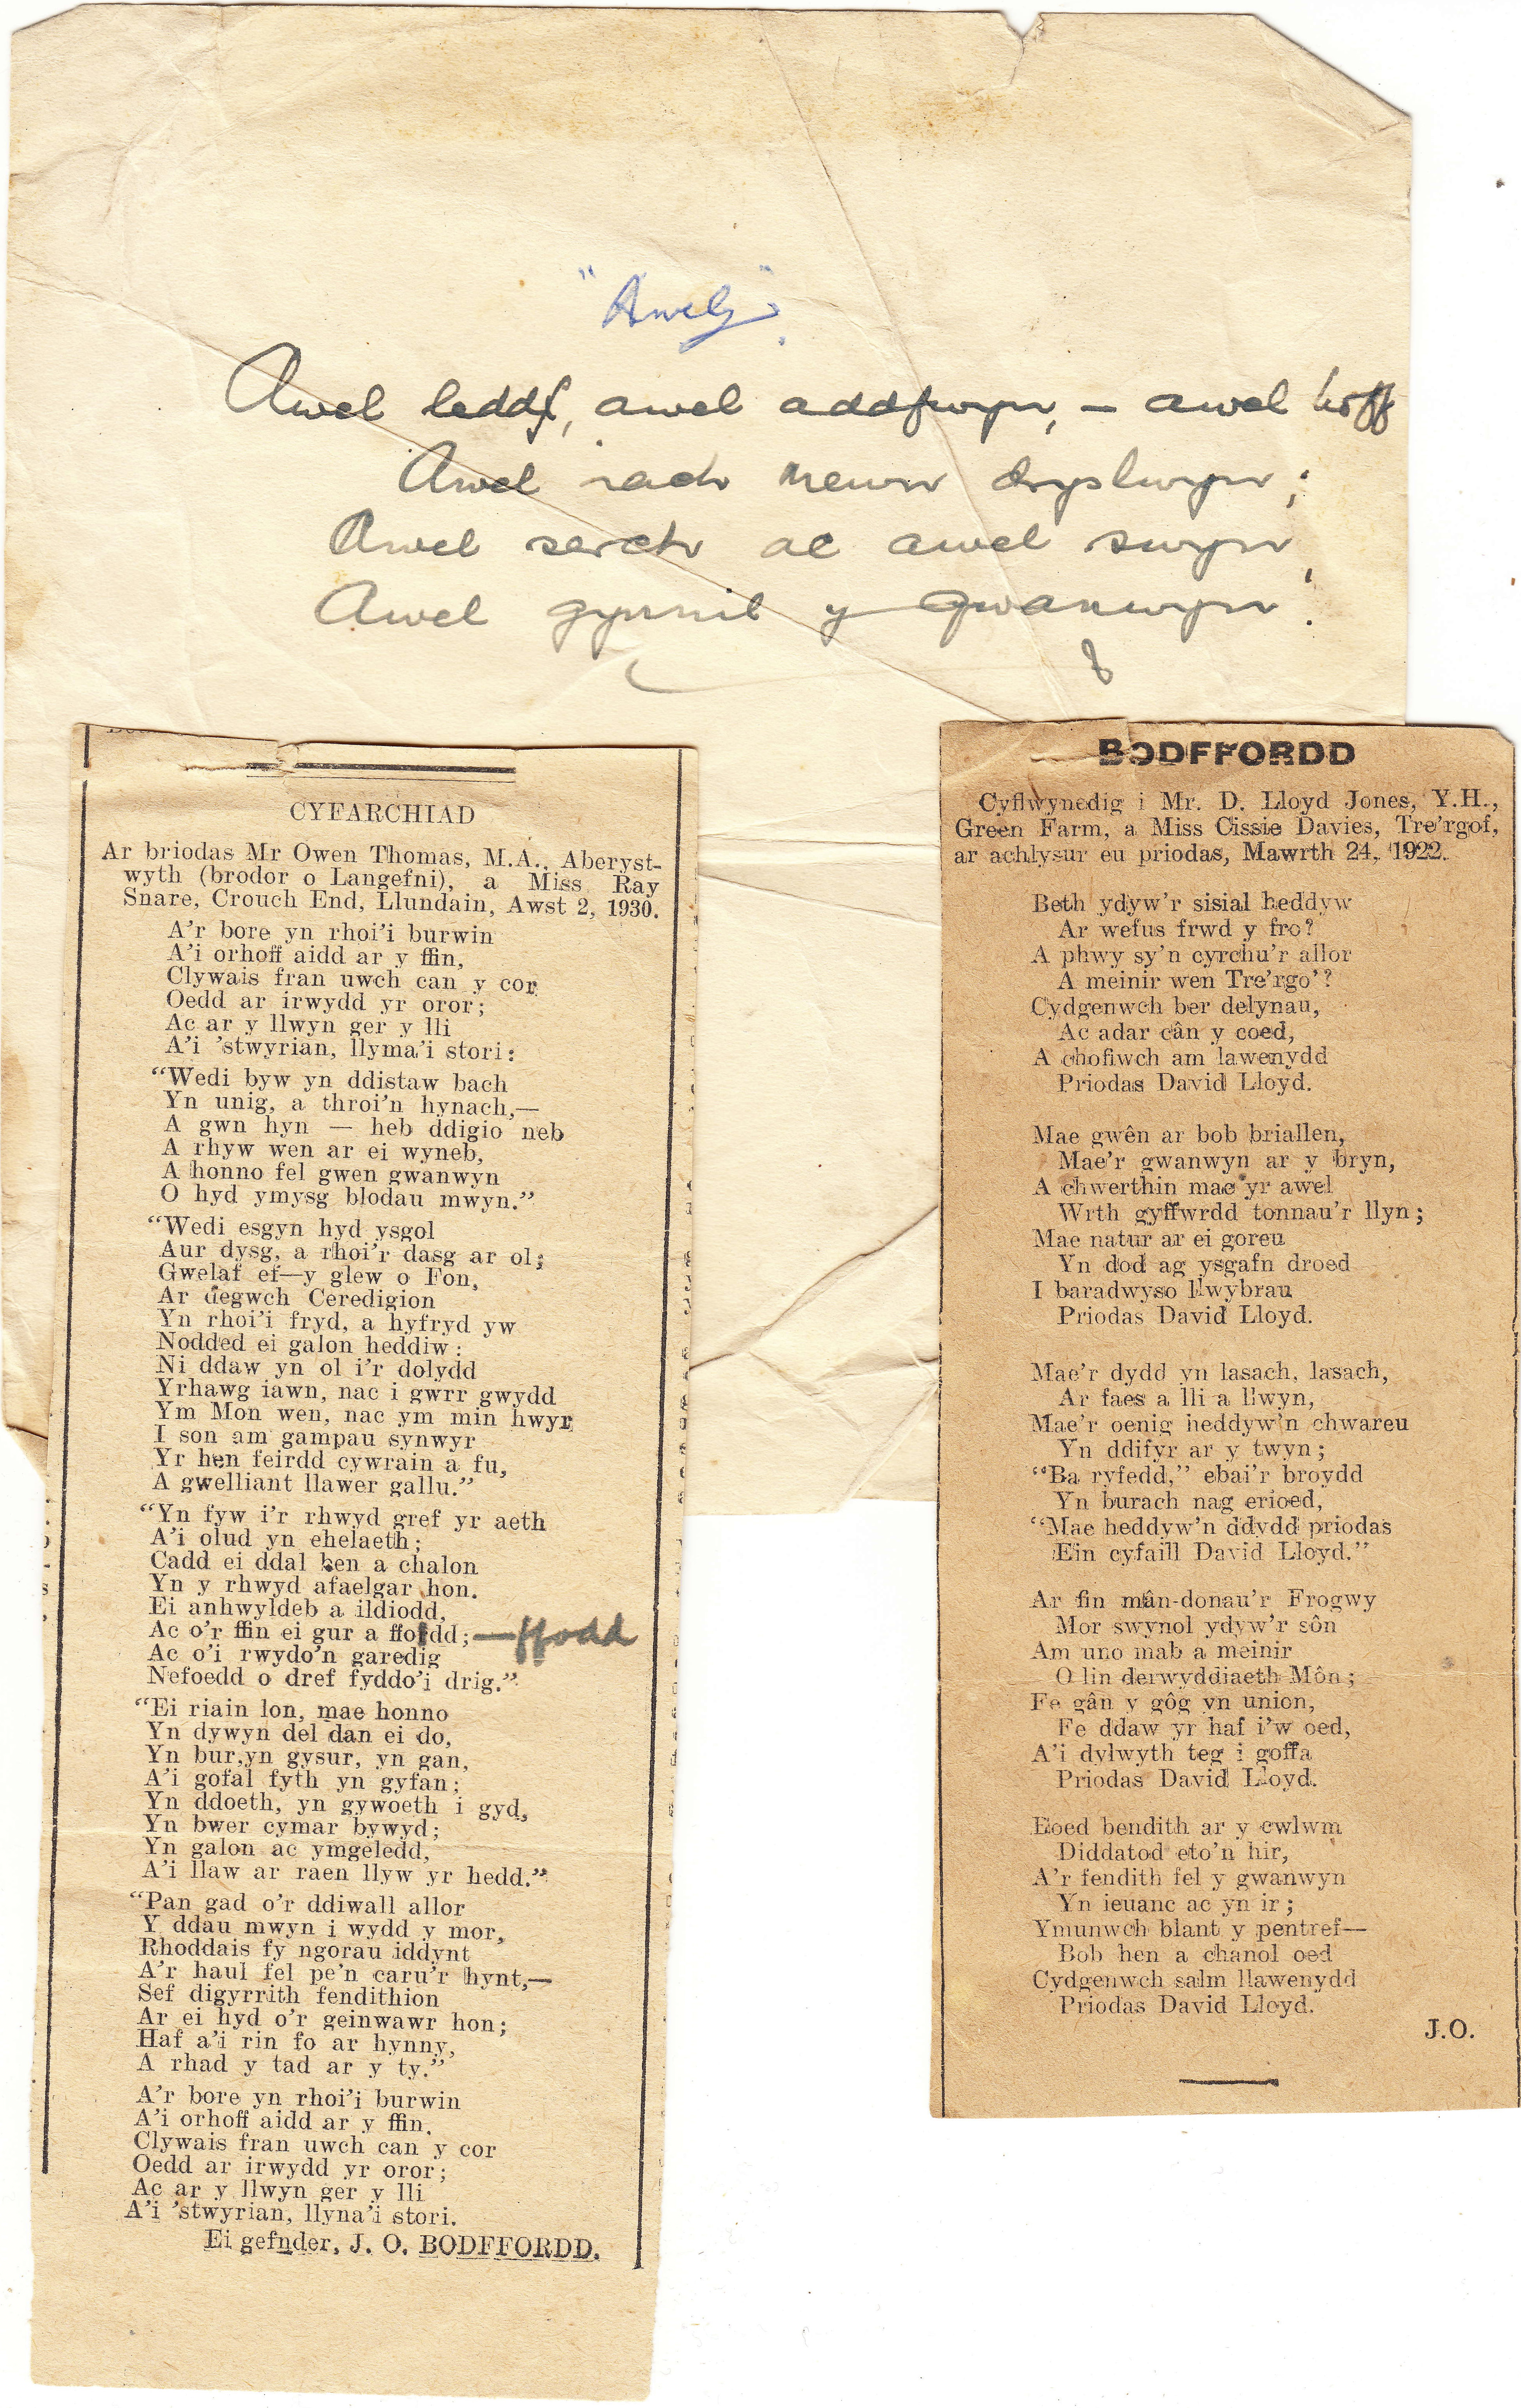 "Awel"
Awel leddf, awel addfwyn, — awel hoff
Awel iach mewn dryslwyn;
Awel serch ac awel swyn,
Awel gynnil y gwanwyn.
CYFARCHIAD
Ar briodas Mr Owen Thomas, M.A., Aberyst-
wyth (brodor o Langefni), a Miss Ray
Snare, Crouch End, Llundain, Awst 2, 1930.
A'r bore yn rhoi'i burwin
A'i orhoff aidd ar y ffin,
Clywais fran uwch can y cor
Oedd ar irwydd yr oror;
Ac ar y llwyn ger y lli
A'i 'stwyrian, llyma'i stori:
"Wedi byw yn ddistaw bach
Yn unig, a throi'n hynach,—
A gwn hyn — heb ddigio neb
A rhyw wen ar ei wyneb,
A honno fel gwen gwanwyn
O hyd ymysg blodau mwyn."
"Wedi esgyn hyd ysgol
Aur dysg, a rhoi'r dasg ar ol;
Gwelaf ef—y glew o Fon,
Ar degwch Ceredigion
Yn rhoi'i fryd, a hyfryd yw
Nodded ei galon heddiw:
Ni ddaw yn ol i'r dolydd
Yrhawg iawn, nac i gwrr gwydd
Ym Mon wen, nac ym min hwyr
I son am gampau synwyr
Yr hen feirdd cywrain a fu,
A gwelliant llawer gallu."
"Yn fyw i'r rhwyd gref yr aeth
A'i olud yn ehelaeth;
Cadd ei ddal ben a chalon
Yn y rhwyd afaelgar hon.
Ei anhwyldeb a ildiodd,
Ac o'r ffin ei gur a ffordd;—ffodd
Ac o'i rwydo'n garedig
Nefoedd o dref fyddo'i drig."
"Ei riain lon, mae honno
Yn dywyn del dan ei do,
Yn bur,yn gysur, yn gan,
A'i gofal fyth yn gyfan;
Yn ddoeth, yn gywoeth i gyd,
Yn bwer cymar bywyd;
Yn galon ac ymgeledd,
A'i llaw ar raen llyw yr hedd."
"Pan gad o'r ddiwall allor
Y ddau mwyn i wydd y mor,
Rhoddais fy ngorau iddynt
A'r haul fel pe'n caru'r hynt,—
Sef digyrrith fendithion
Ar ei hyd o'r geinwawr hon;
Haf a'i rin fo ar hynny,
A rhad y tad ar y ty."
A'r bore yn rhoi'i burwin
A'i orhoff aidd ar y ffin,
Clywais fran uwch can y cor
Oedd ar irwydd yr oror;
Ac ar y llwyn ger y lli
A'i 'stwyrian, llyna'i stori.
Ei gefnder, J. O. BODFFORDD.
BODFFORDD
Cyflwynedig i Mr. D. Lloyd Jones, Y.H.,
Green Farm, a Miss Cissie Davies, Tre'rgof,
ar achlysur eu priodas, Mawrth 24, 1922.
Beth ydyw'r sisial heddyw
Ar wefus frwd y fro?
A phwy sy'n cyrchu'r allor
A meinir wen Tre'rgo'?
Cydgenwch ber delynau,
Ac adar cân y coed,
A chofiwch am lawenydd
Priodas David Lloyd.
Mae gwên ar bob briallen,
Mae'r gwanwyn ar y bryn,
A chwerthin mae yr awel
Wrth gyffwrdd tonnau'r llyn;
Mae natur ar ei goreu
Yn dod ag ysgafn droed
I baradwyso llwybrau
Priodas David Lloyd.
Mae'r dydd yn lasach, lasach,
Ar faes a lli a llwyn,
Mae'r oenig heddyw'n chwareu
Yn ddifyr ar y twyn;
"Ba ryfedd," ebai'r broydd
Yn burach nag erioed,
"Mae heddyw'n ddydd priodas
Ein cyfaill David Lloyd."
Ar fin mân-donau'r Frogwy
Mor swynol ydyw'r sôn
Am uno mab a meinir
O lin derwyddiaeth Môn;
Fe gân y gôg yn union,
Fe ddaw yr haf i'w oed,
A'i dylwyth teg i goffa
Priodas David Lloyd.
Boed bendith ar y cwlwm
Diddatod eto'n hir,
A'r fendith fel y gwanwyn
Yn ieuanc ac yn ir;
Ymunwch blant y pentref—
Bob hen a chanol oed
Cydgenwch salm llawenydd
Priodas David Lloyd.
J.O.